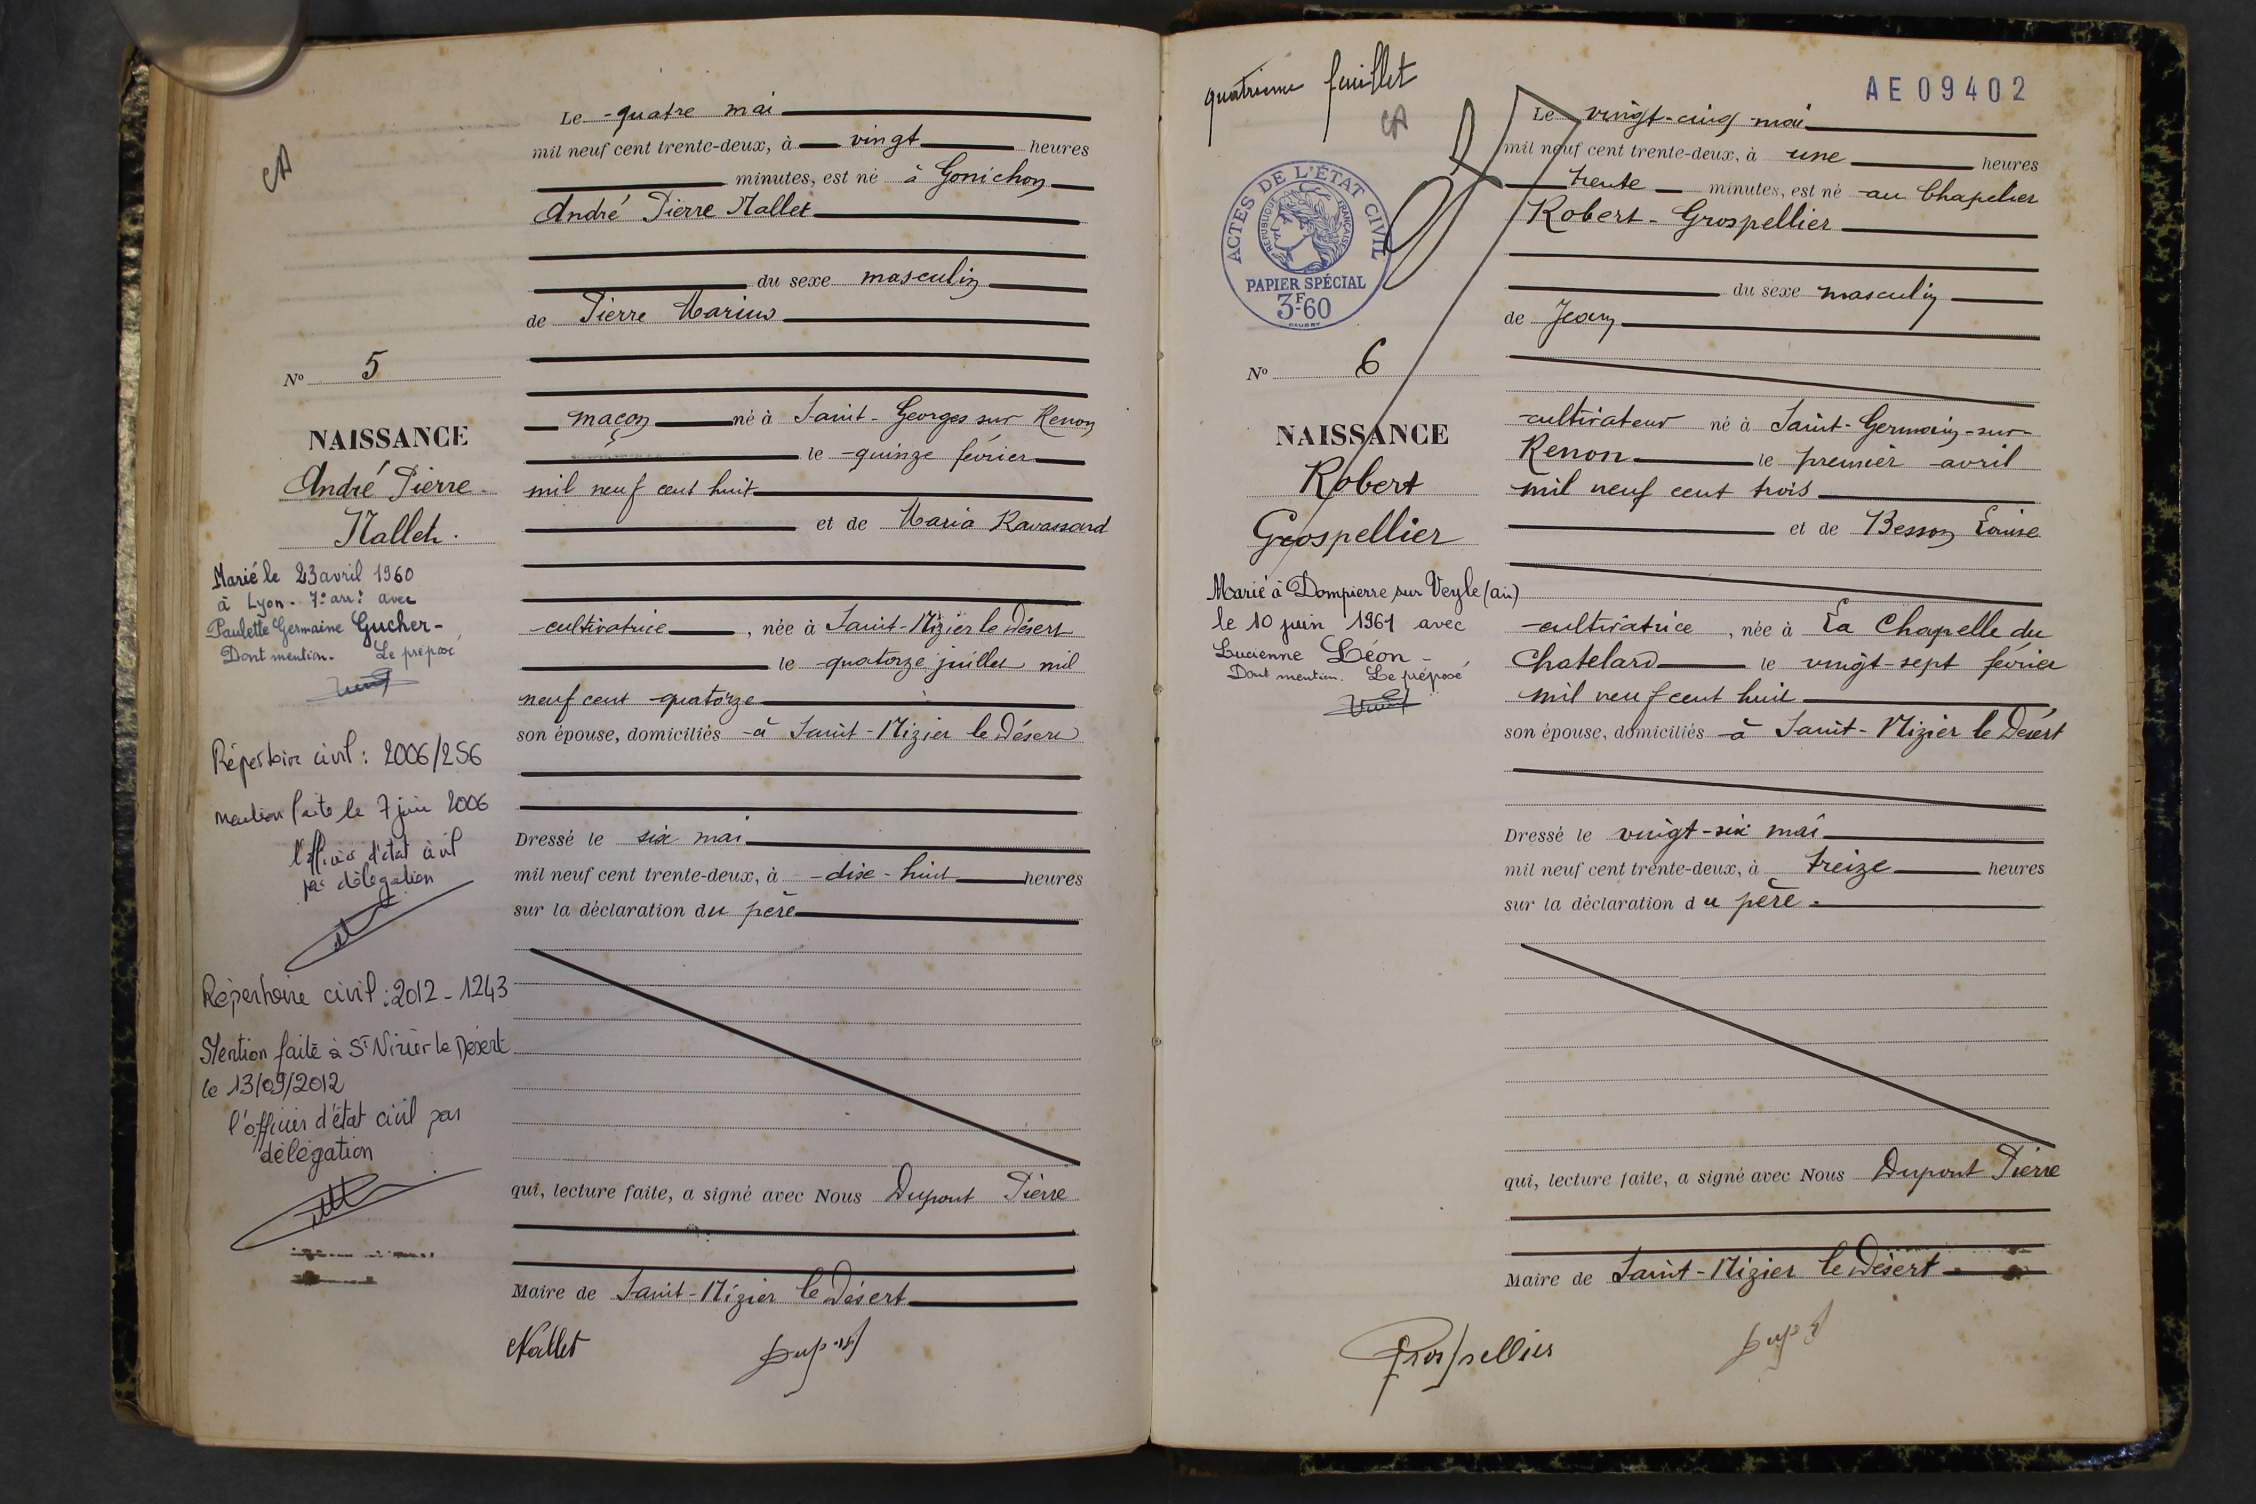 Le quatre mai
mil neuf cent trente-deux, à vingt heures
minutes, est né à Gonichon
André Pierre Nallet
du sexe masculin
de Pierre Marius
maçon né à Saint-Georges sur Renon
le quinze février
mil neuf cent huit
et de Maria Ravassard
cultivatrice, née à Saint-Nizier le Désert
le quatorze juillet mil
neuf cent quatorze
son épouse, domiciliés à Saint-Nizier le Désert
Dressé le six mai
mil neuf cent trente-deux, à dix-huit heures
sur la déclaration du père
qui, lecture faite, a signé avec Nous Dupont Pierre
Maire de Saint-Nizier le Désert
Nallet Dupont
N° 5
NAISSANCE
André Pierre
Nallet.
Marié le 23 avril 1960
à Lyon - 7e arrt avec
Paulette Germaine Gucher-
Dont mention. Le préposé
Répertoire civil : 2006/256
mention faite le 7 juin 2006
l'officier d'état civil
par délégation
Répertoire civil : 2012-1243
Mention faite à St Nizier le Désert
le 13/09/2012
l'officier d'état civil par
délégation
quatrième feuillet
AE09402
ACTES DE L'ÉTAT CIVIL
RÉPUBLIQUE FRANÇAISE
PAPIER SPÉCIAL
3F60
N° 6
NAISSANCE
Robert
Grospellier
Marié à Dompierre sur Veyle (ain)
le 10 juin 1961 avec
Lucienne Léon -
Dont mention. Le préposé
Le vingt-cinq mai
mil neuf cent trente-deux, à une heures
trente minutes, est né au Chapelier
Robert Grospellier
du sexe masculin
de Jean
cultivateur né à Saint-Germain-sur-
Renon le premier avril
mil neuf cent trois
et de Besson Louise
cultivatrice, née à La Chapelle du
Chatelard le vingt-sept février
mil neuf cent huit
son épouse, domiciliés à Saint-Nizier le Désert
Dressé le vingt-six mai
mil neuf cent trente-deux, à treize heures
sur la déclaration du père.
qui, lecture faite, a signé avec Nous Dupont Pierre
Maire de Saint-Nizier le Désert
Grospellier